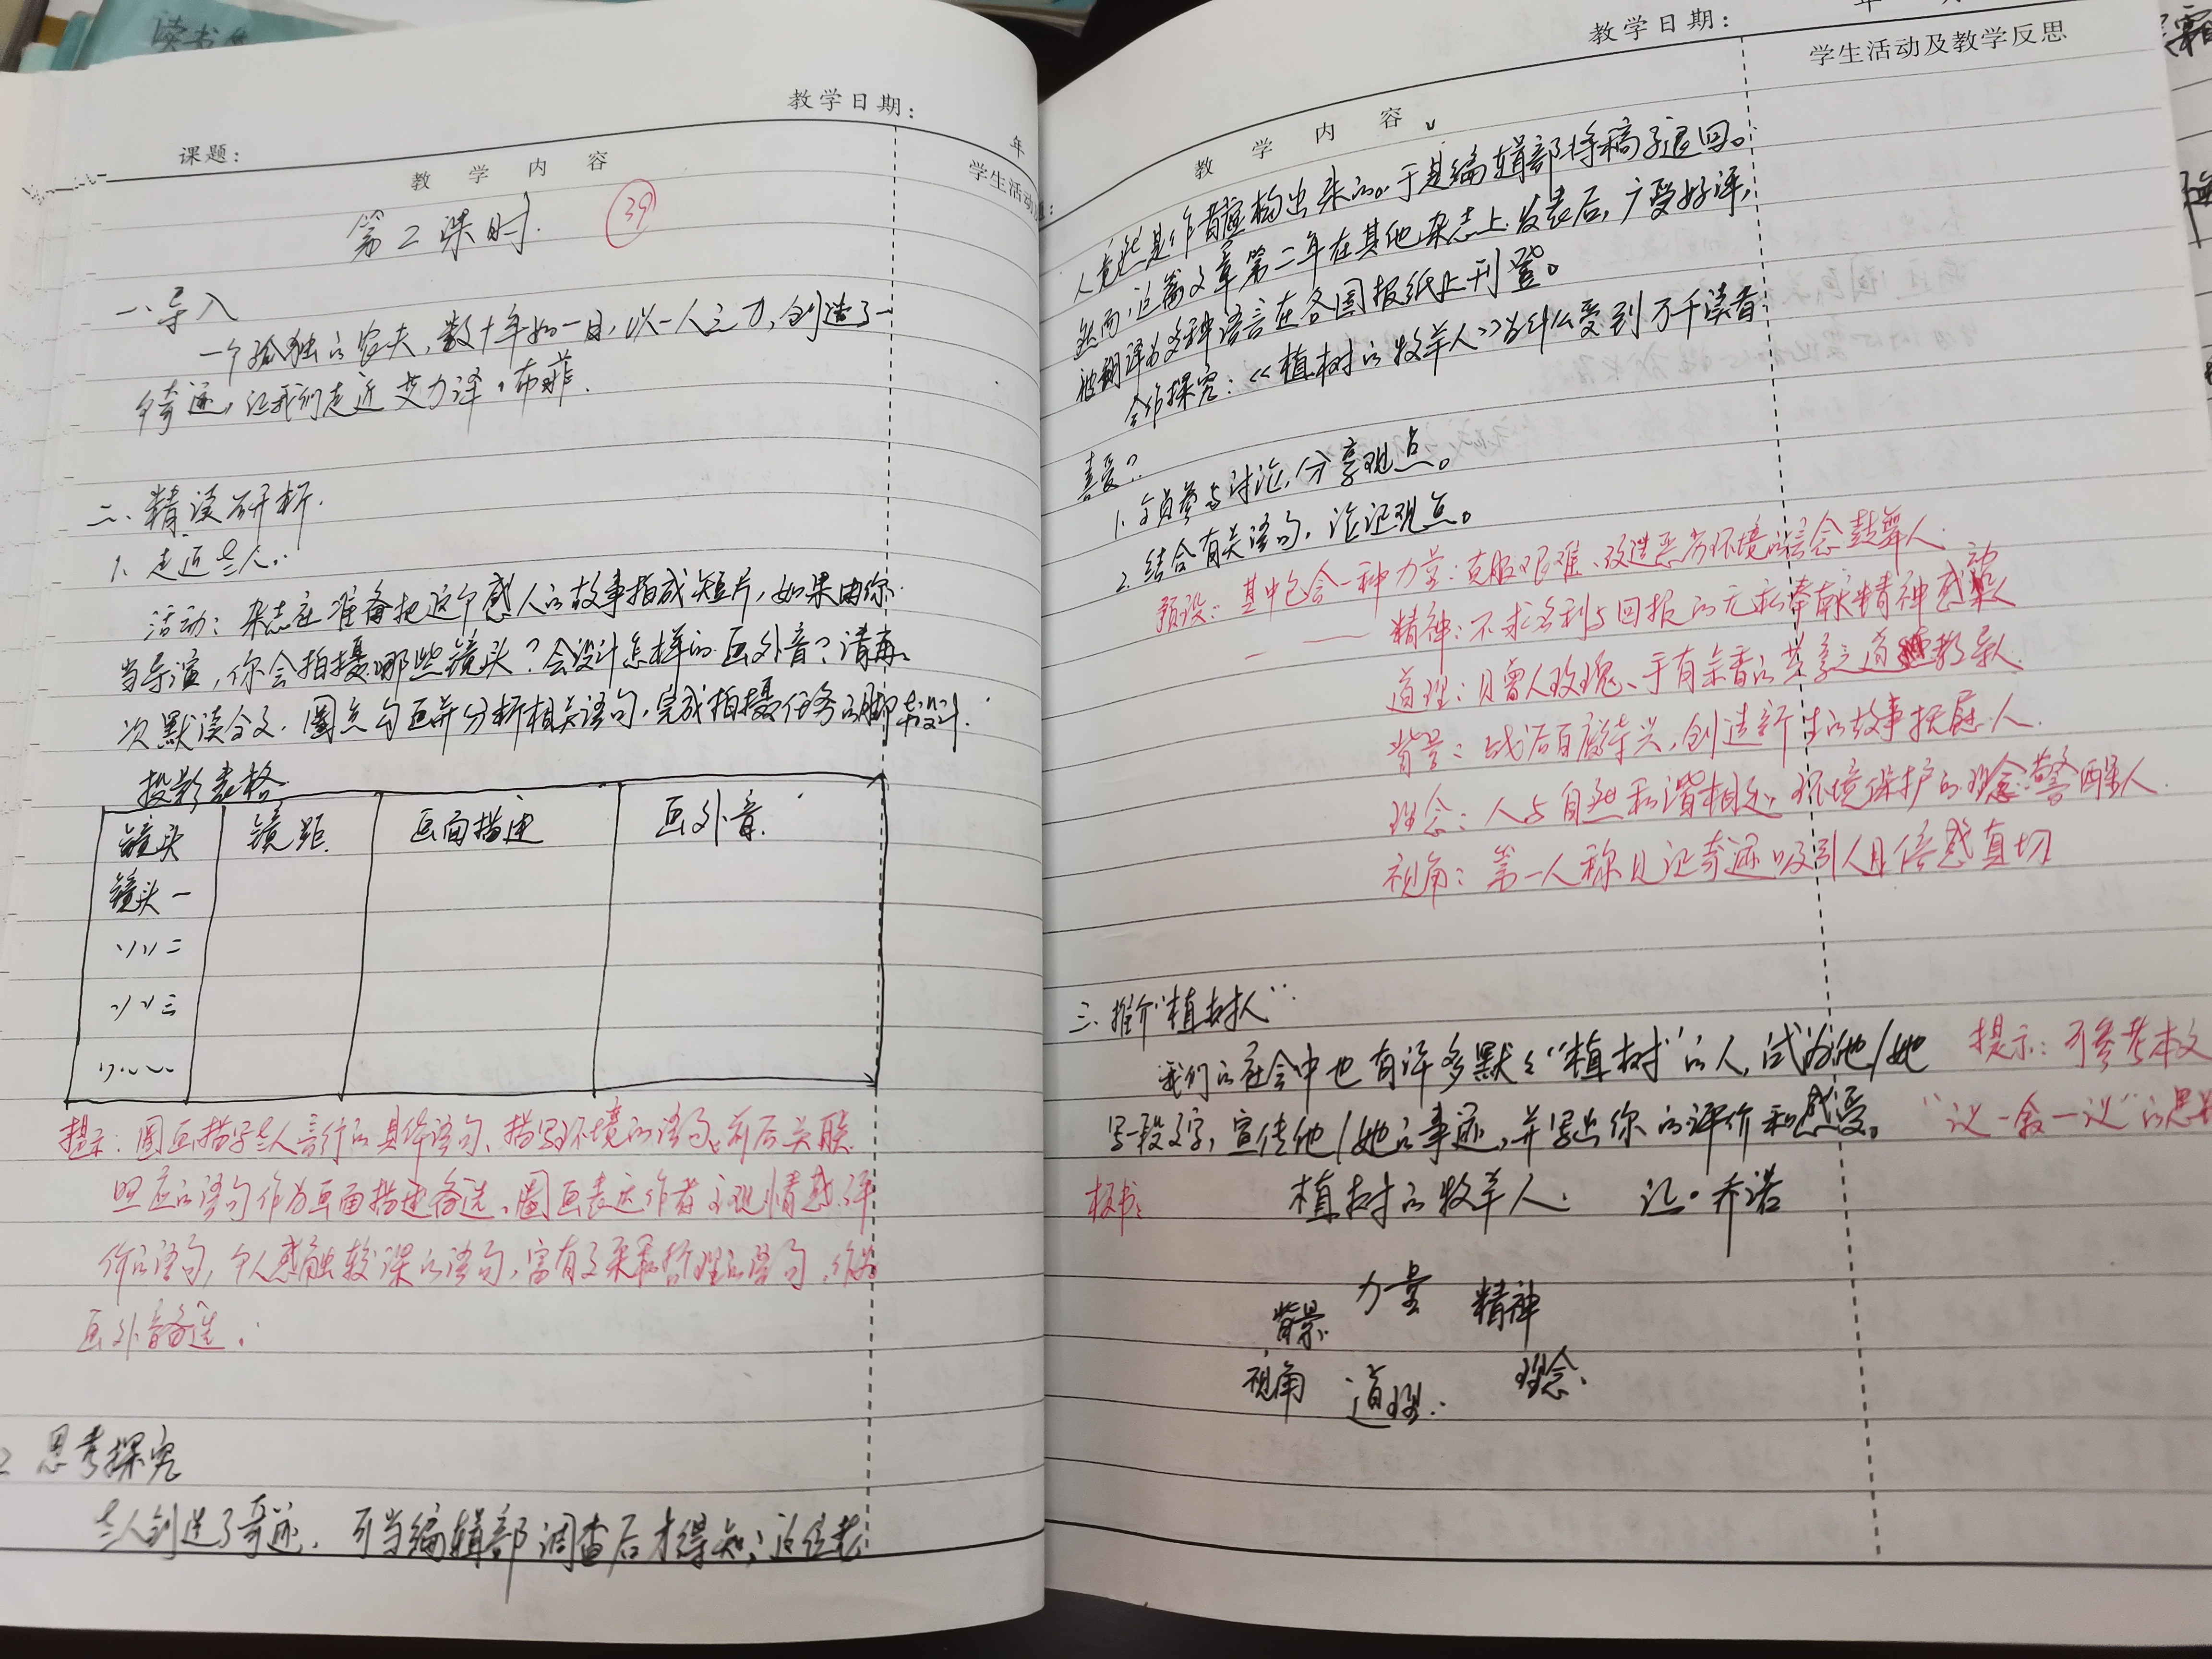 读书
教学日期:
课题:
年
教学内容
学生活动
第2课时.
39
一、导入
一个孤独的农夫,数十年如一日,以一人之力,创造了一
个奇迹,让我们走近艾力泽·布菲.
二、精读研析.
1、走近老人.
活动:杂志社准备把这个感人的故事拍成短片,如果由你
当导演,你会拍摄哪些镜头?会设计怎样的画外音?请再
次默读全文.圈点勾画并分析相关语句,完成拍摄任务的脚本设计.
投影表格
镜头 镜距 画面描述 画外音.
镜头一
〃〃二
〃〃三
〃……
提示:圈画描写老人言行的具体语句、描写环境的语句,前后关联
照应的语句作为画面描述备选、圈画表达作者主观情感评
价的语句,个人感触较深的语句,富有文采和哲理的语句,作为
画外音备选.
2 思考探究
老人创造了奇迹.可当编辑部调查后才得知:这位老
教学日期:
年 月
教学内容
学生活动及教学反思
人竟然是作者虚构出来的。于是编辑部将稿子退回。
然而,这篇文章第二年在其他杂志上发表后,广受好评,
被翻译为多种语言在各国报纸上刊登。
合作探究:《植树的牧羊人》为什么受到万千读者
喜爱?
1.全员参与讨论,分享观点。
2.结合有关语句,论证观点。
预设:其中包含一种力量:克服艰难、改造恶劣环境的信念鼓舞人.
一 精神:不求名利与回报的无私奉献精神感染人
道理:赠人玫瑰、手有余香的共享之道教导人.
背景:战后百废待兴,创造新生的故事抚慰人.
理念:人与自然和谐相处,环境保护的理念警醒人.
视角:第一人称见证奇迹吸引人且倍感真切
三、推介"植树人"
我们的社会中也有许多默默"植树"的人,试为他/她
写一段文字,宣传他/她的事迹,并写出你的评价和感受。
提示:可参考本文
"议一叙一议"的思
板书:
植树的牧羊人. 让·乔诺
力量 精神
背景
视角 道理 理念